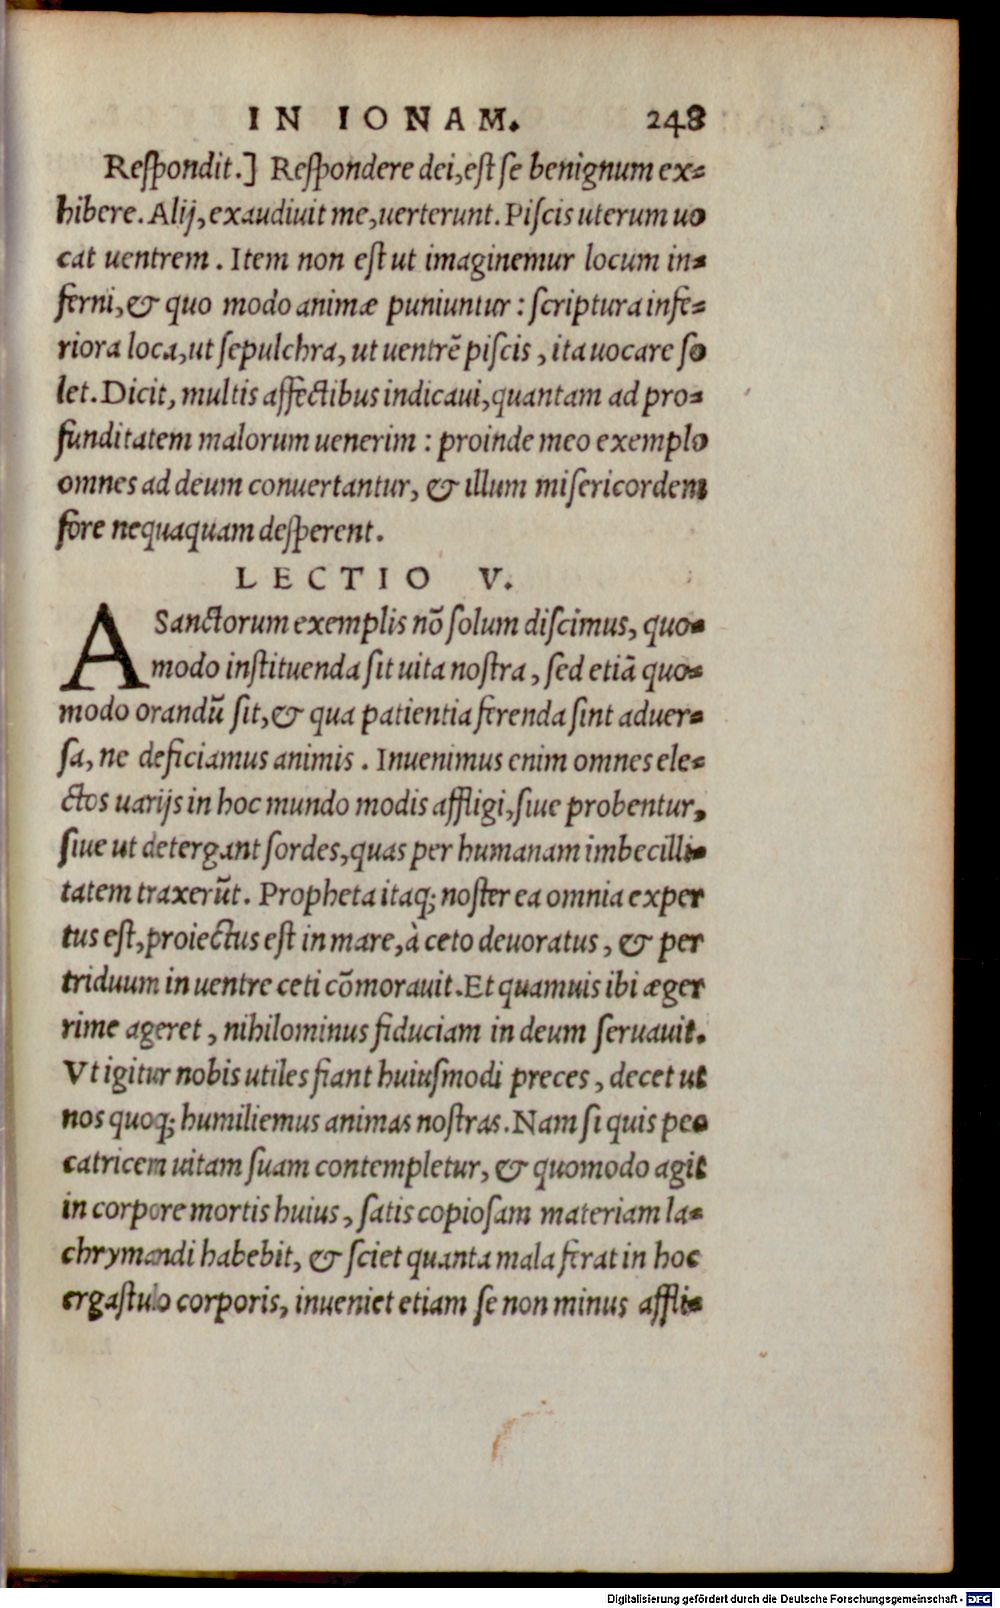 IN IONAM. 248
Reſpondit.] Reſpondere dei, eſt ſe benignum ex=
hibere. Alij, exaudiuit me, uerterunt. Piſcis uterum uo
cat uentrem. Item non eſt ut imaginemur locum in=
ferni, & quo modo animæ puniuntur: ſcriptura infe=
riora loca, ut ſepulchra, ut uentrẽ piſcis, ita uocare ſo
let. Dicit, multis affectibus indicaui, quantam ad pro=
funditatem malorum uenerim: proinde meo exemplo
omnes ad deum conuertantur, & illum miſericordem
fore nequaquam deſperent.
LECTIO V.
A Sanctorum exemplis nõ ſolum diſcimus, quo=
modo inſtituenda ſit uita noſtra, ſed etiã quo=
modo orandũ ſit, & qua patientia ferenda ſint aduer=
ſa, ne deficiamus animis. Inuenimus enim omnes ele=
ctos uarijs in hoc mundo modis affligi, ſiue probentur,
ſiue ut detergant ſordes, quas per humanam imbecilli=
tatem traxerũt. Propheta itaq; noſter ea omnia exper
tus eſt, proiectus eſt in mare, à ceto deuoratus, & per
triduum in uentre ceti cõmorauit. Et quamuis ibi æger
rime ageret, nihilominus fiduciam in deum ſeruauit.
Vt igitur nobis utiles fiant huiuſmodi preces, decet ut
nos quoq; humiliemus animas noſtras. Nam ſi quis pec
catricem uitam ſuam contempletur, & quomodo agit
in corpore mortis huius, ſatis copioſam materiam la=
chrymandi habebit, & ſciet quanta mala ferat in hoc
ergaſtulo corporis, inueniet etiam ſe non minus affli=
Digitalisierung gefördert durch die Deutsche Forschungsgemeinschaft - DFG